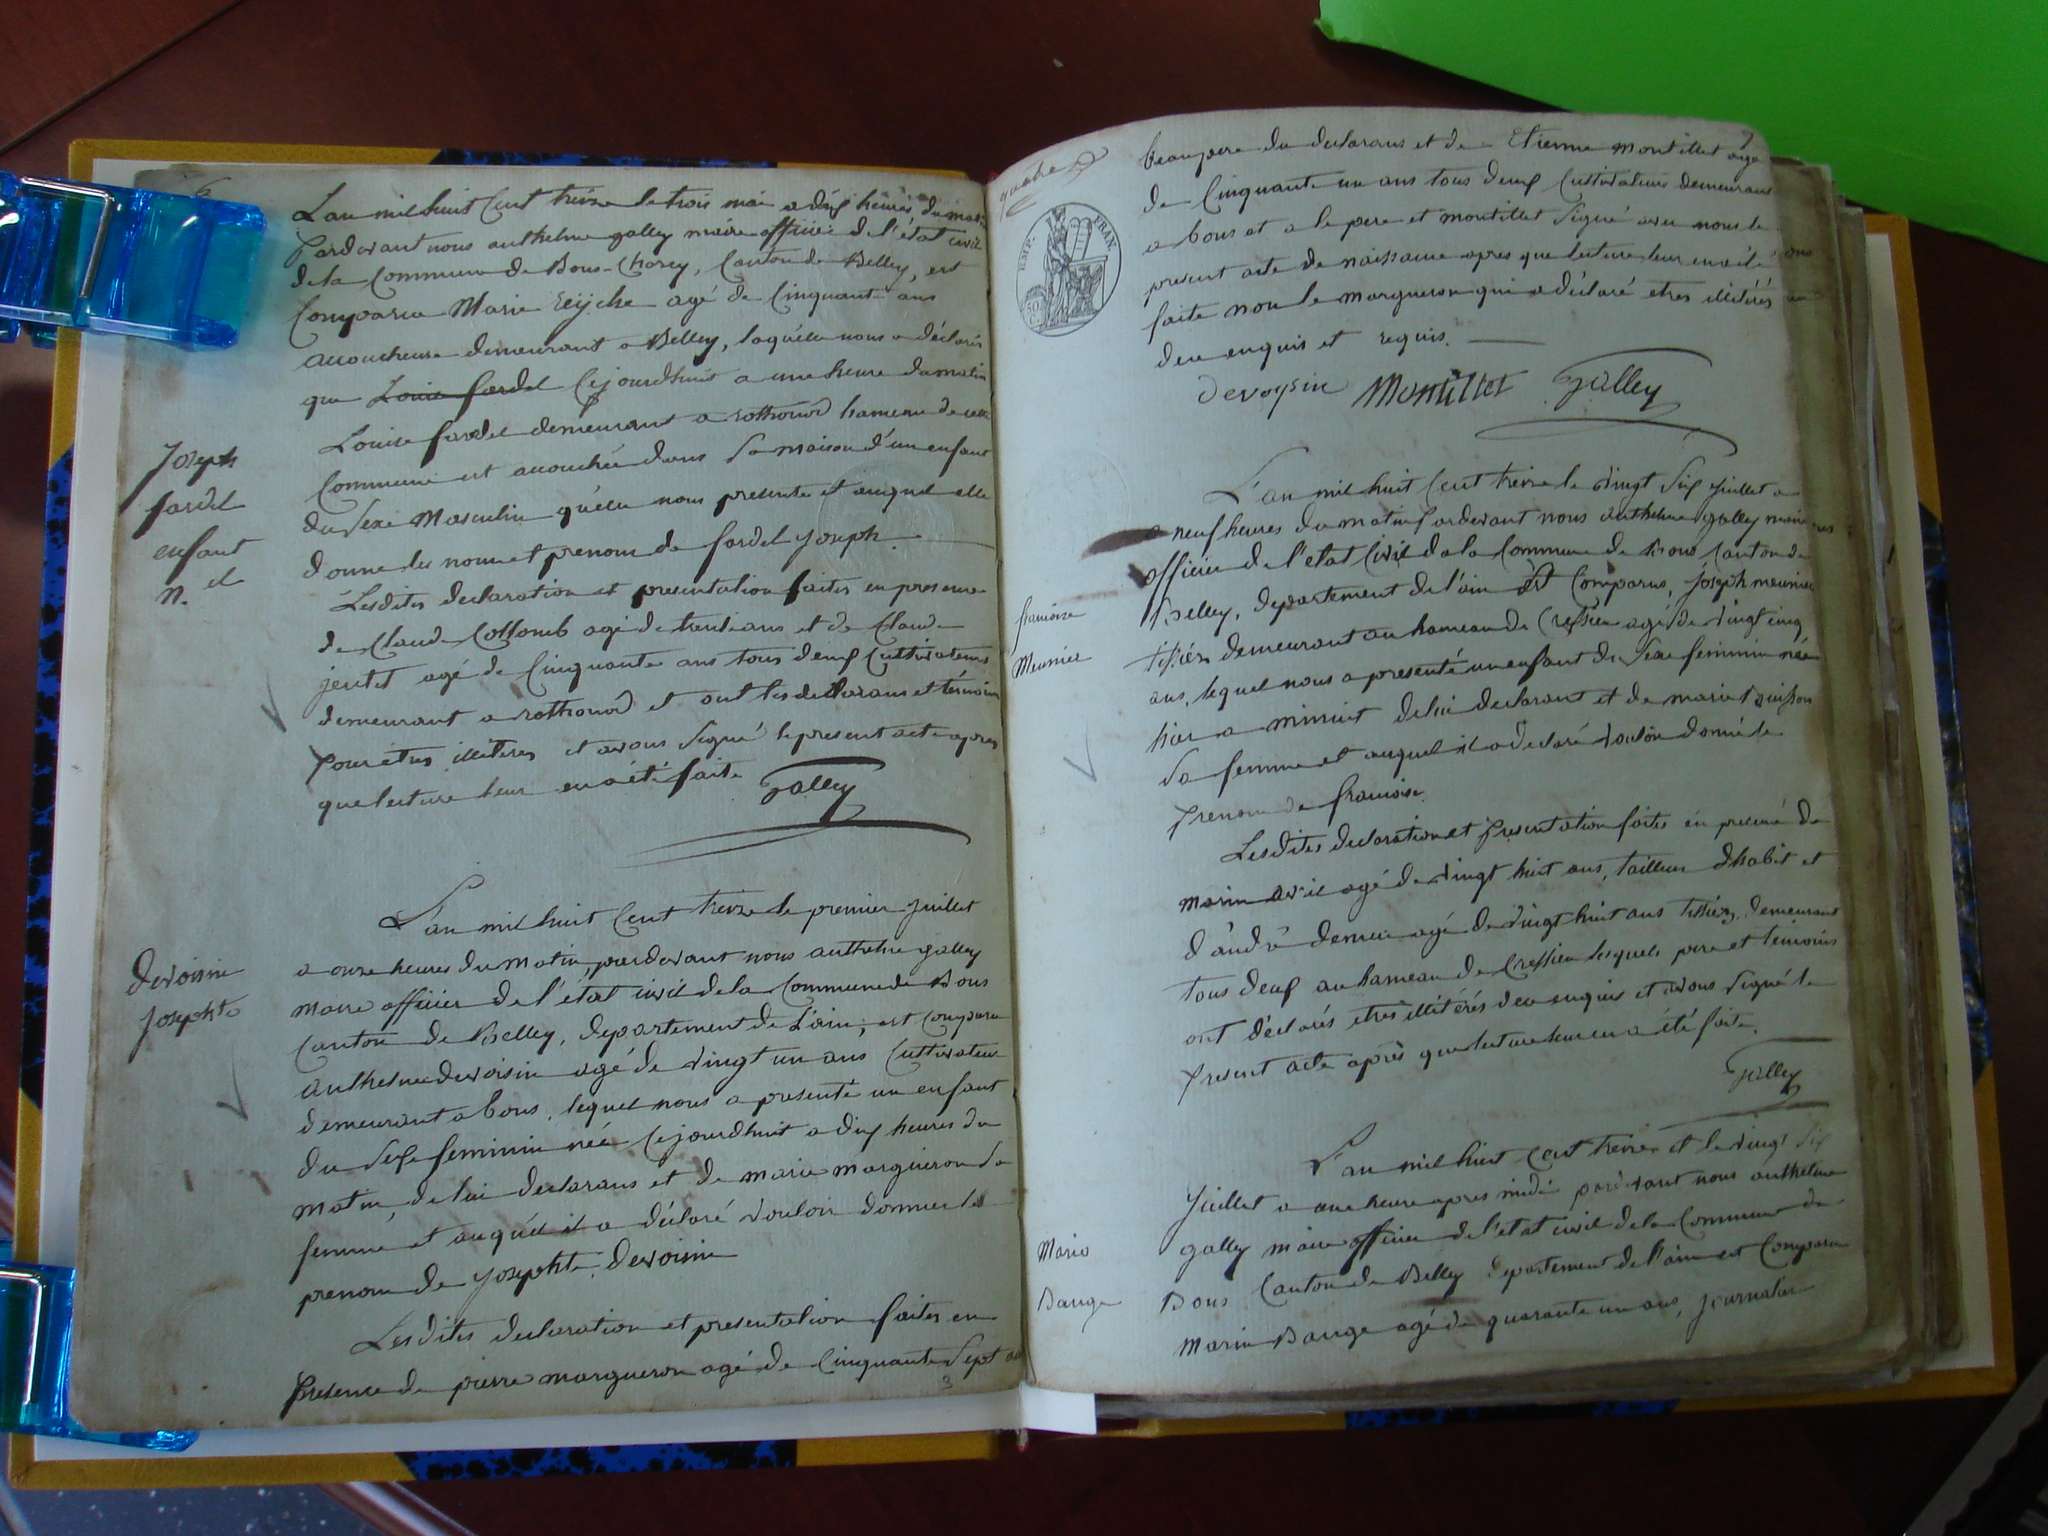 L'an mil huit Cent treize le trois mai a dix heures du matin
Pardevant nous anthelme galley maire officier de l'état civil
de la Commune de Bons-Chorey, Canton de Belley, est
Comparue Marie agé de Cinquante ans
accoucheuse demeurant a Belley, laquelle nous a déclaré
que Louise fardel Cejourdhuit a une heure du matin
Louise fardel demeurant a rothonod hameau de cette
Commune est accouchée dans sa maison d'un enfant
du sexe Masculin qu'elle nous presente et auquel elle
donne les nom et prenom de fardel Joseph
Joseph
fardel
enfant
n.el
Lesdites declaration et presentation faites en presence
de Claude Collomb agé de trente ans et de Claude
jentet agé de Cinquante ans tous deux Cultivateurs
demeurant a rothonod et ont les declarans et témoins
pour être illiteres et avons signé le present acte apres
que lecture leur en a été faite Galley
L'an mil huit Cent treize le premier juillet
a onze heures du matin, pardevant nous anthelme galley
devoisin
Josephte
maire officier de l'état civil de la Commune de Bons
Canton de Belley, departement de L'ain, est comparu
anthelme devoisin agé de vingt un ans Cultivateur
demeurant a bons, lequel nous a presenté un enfant
du sexe feminin née Cejourdhuit a dix heures du
matin, de lui declarans et de marie margueron sa
femme et auquel il a déclaré vouloir donner les
prenom de Josephte devoisin
Lesdites declaration et presentation faites en
Presence de pierre margueron agé de Cinquante sept ans
3
9
beaupere du declarans et de Etienne montillet age
de Cinquante un ans tous deux Cultivateurs demeurant
a bons et a le pere et montillet signé avec nous le
present acte de naissance apres que lecture leur en a été
faite non le margueron qui a déclaré etres illitéré
de ce enquis et requis.
EMP. FRAN.
devoysin Montillet Galley
L'an mil huit Cent treize le vingt six juillet a
a neuf heures du matin pardevant nous anthelme galley maire
officier de l'etat Civil de la Commune de Bons Canton de
Belley, departement de l'ain est Comparus, Joseph meunier
francoise
Meunier
tissier demeurant au hameau de Cressieu agé de vingt cinq
ans, lequel nous a presenté un enfant du sexe feminin née
hier a minuit de lui declarant et de marie
sa femme et auquel il a declaré vouloir donné le
prenom de francoise.
Lesdites declaration et presentation faites en presence de
marin avril agé de vingt huit ans, tailleur d'habit et
d'andré agé de vingt huit ans tissier, demeurant
tous deux au hameau de Cressieu lesquels pere et temoins
ont déclarés etres illitérés de ce enquis et avons signé le
present acte après que lecture leur en a été faite.
Galley
L'an mil huit Cent treize et le vingt six
Juillet a une heure apres midi pardevant nous anthelme
galley maire officier de l'etat civil de la Commune de
Marie
Bauge
Bons Canton de Belley departement de l'ain est Comparu
Marin Bauge agé de quarante un ans, Journalier